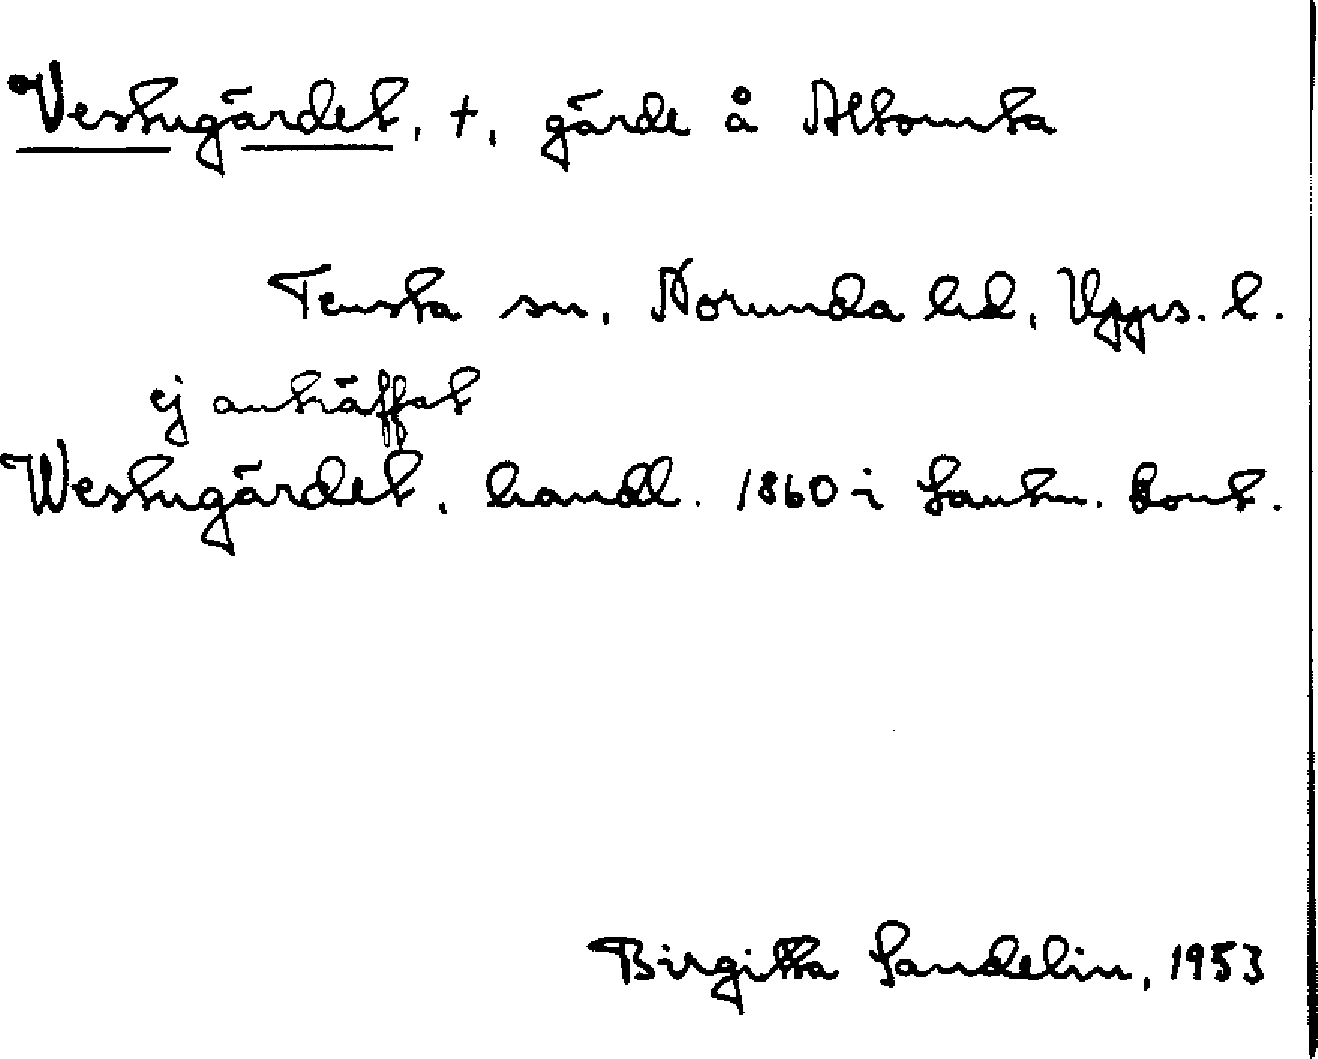 Vestugärdet, †, gärde å Altomta
Tensta sn, Norunda hd, Upps. l.
ej anträffat
Westugärdet, handl. 1860 i Lantm. kont.
Birgitta Sandelin, 1953